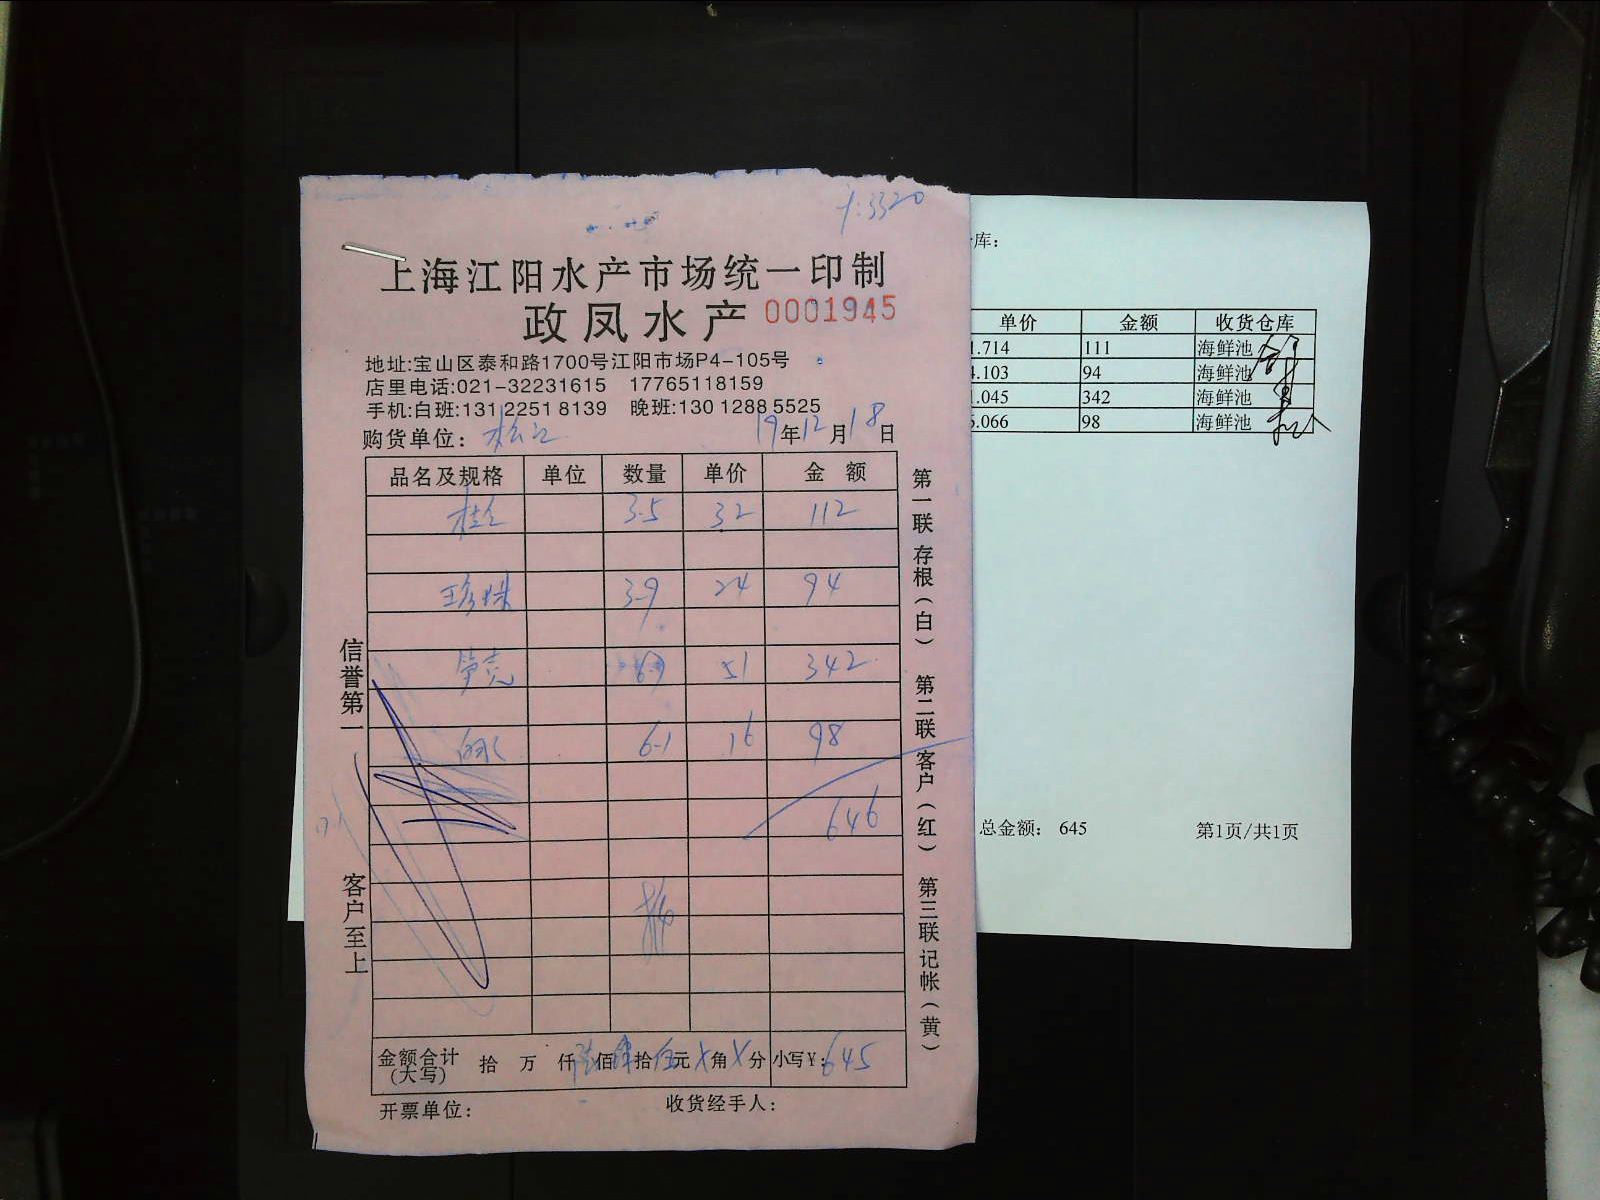 1:3320
上海江阳水产市场统一印制
政凤水产 0001945
地址:宝山区泰和路1700号江阳市场P4-105号
店里电话:021-32231615 17765118159
手机:白班:131 2251 8139 晚班:130 1288 5525
购货单位: 松江 19年12月18日
品名及规格 单位 数量 单价 金 额
桂 3.5 32 112
珍珠 3.9 24 94
笋壳 6.7 51 342
6.1 16 98
646
金额合计(大写) 拾 万 仟 陆佰肆拾伍元X角X分 小写¥: 645
开票单位: 收货经手人:
信誉第一 客户至上
第一联存根(白) 第二联客户(红) 第三联记帐(黄)
库:
单价 金额 收货仓库
.714 111 海鲜池
.103 94 海鲜池
.045 342 海鲜池
.066 98 海鲜池
总金额: 645 第1页/共1页